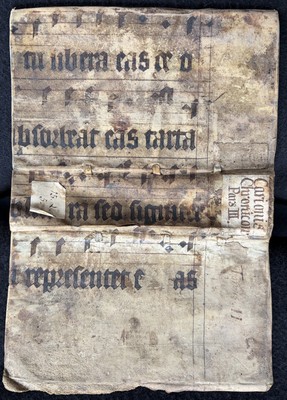 libera eas de o
bsorbeat eas tarta
ra sed signife
representet e as
Carionis
Chronicor
Pars III.